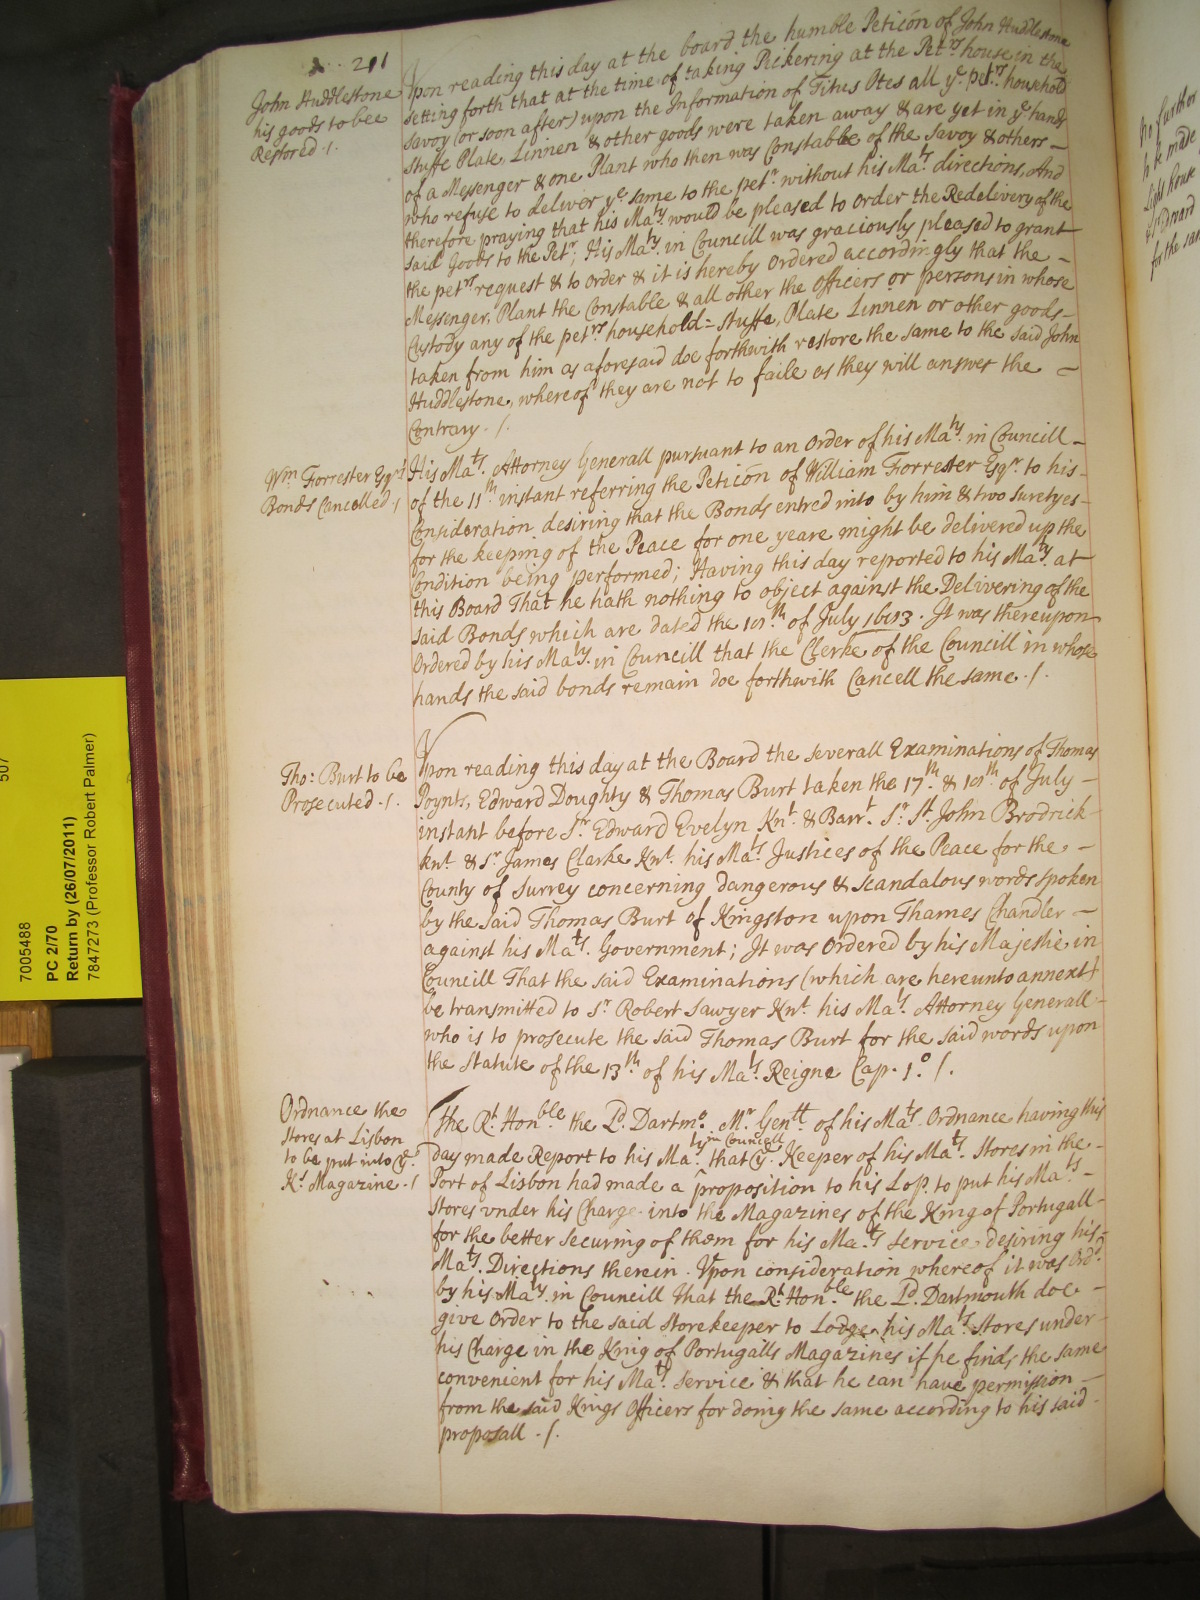 211
John Huddlestone
his goods to bee
Restored ./.
Vpon reading this day at the board the humble Peticōn of John Huddlestone
setting forth that at the time of taking Pickering at the Petrs house in the
Savoy (or soon after) upon the Information of Titus Otes all ye Petrs household
stuffe Plate Linnen & other goods were taken away & are yet in ye hands
of a Messenger & one Plant who then was Constable of the Savoy & others –
who refuse to deliver ye same to the petr without his Mats directions, And
therefore praying that his Maty would be pleased to order the Redelivery of the
said Goods to the Petr; His Maty in Councill was graciously pleased to grant
the petrs request & to order & it is hereby Ordered accordingly that the –
Messenger, Plant the Constable & all other the Officers or persons in whose
Custody any of the petrs household=stuffe, Plate Linnen or other goods –
taken from him as aforesaid doe forthwith restore the same to the said John
Huddlestone, whereof they are not to faile as they will answer the –
Contrary ./.
Wm Forrester Esqrs
Bonds Cancelled ./
His Mats Attorney Generall pursuant to an Order of his Maty in Councill –
of the 11th instant referring the Peticōn of William Forrester Esqr to his –
Consideration desiring that the Bonds entred into by him & two suretyes –
for the keeping of the Peace for one yeare might be delivered up the
Condition being performed; Having this day reported to his Maty at
this Board That he hath nothing to object against the Delivering of the
said Bonds which are dated the 18th of July 1683. It was thereupon
Ordered by his Maty in Councill that the Clerke of the Councill in whose
hands the said bonds remain doe forthwith Cancell the same ./.
Tho: Burt to be
Prosecuted ./.
Vpon reading this day at the Board the severall Examinations of Thomas
Poynts, Edward Doughty & Thomas Burt taken the 17th & 18th of July –
instant before Sr Edward Evelyn Knt & Barrt Sr St John Brodrick
knt & Sr James Clarke Knt his Mats Justices of the Peace for the –
County of Surrey concerning dangerous & scandalous words spoken
by the said Thomas Burt of Kingston upon Thames Chandler –
against his Mats Government; It was Ordered by his Majestie in
Councill That the said Examinations (which are hereunto annext)
be transmitted to Sr Robert Sawyer Knt his Mats Attorney Generall –
who is to prosecute the said Thomas Burt for the said words upon
the Statute of the 13th of his Mats Reigne Cap. 1o ./.
Ordnance the
stores at Lisbon
to be put into ye
Ks Magazine ./
The Rt Honble the Ld Dartmo Mr Genll of his Mats Ordnance having this
day made Report to his Maty in Councill that ye Keeper of his Mats Stores in the –
Port of Lisbon had made a proposition to his Lop to put his Mats –
Stores vnder his Charge into the Magazines of the King of Portugall –
for the better securing of them for his Mats service desiring his –
Mats Directions therein. Vpon consideration whereof it was Ordd
by his Maty in Councill That the Rt Honble the Ld Dartmouth doe –
give Order to the said storekeeper to Lodge his Mats Stores under –
his Charge in the King of Portugalls Magazines if he finds the same
convenient for his Mats service & that he can have permission –
from the said Kings Officers for doing the same according to his said
proposall ./.
no further
to be made
Light house
for the
507
7005488
PC 2/70
Return by (26/07/2011)
7847273 (Professor Robert Palmer)